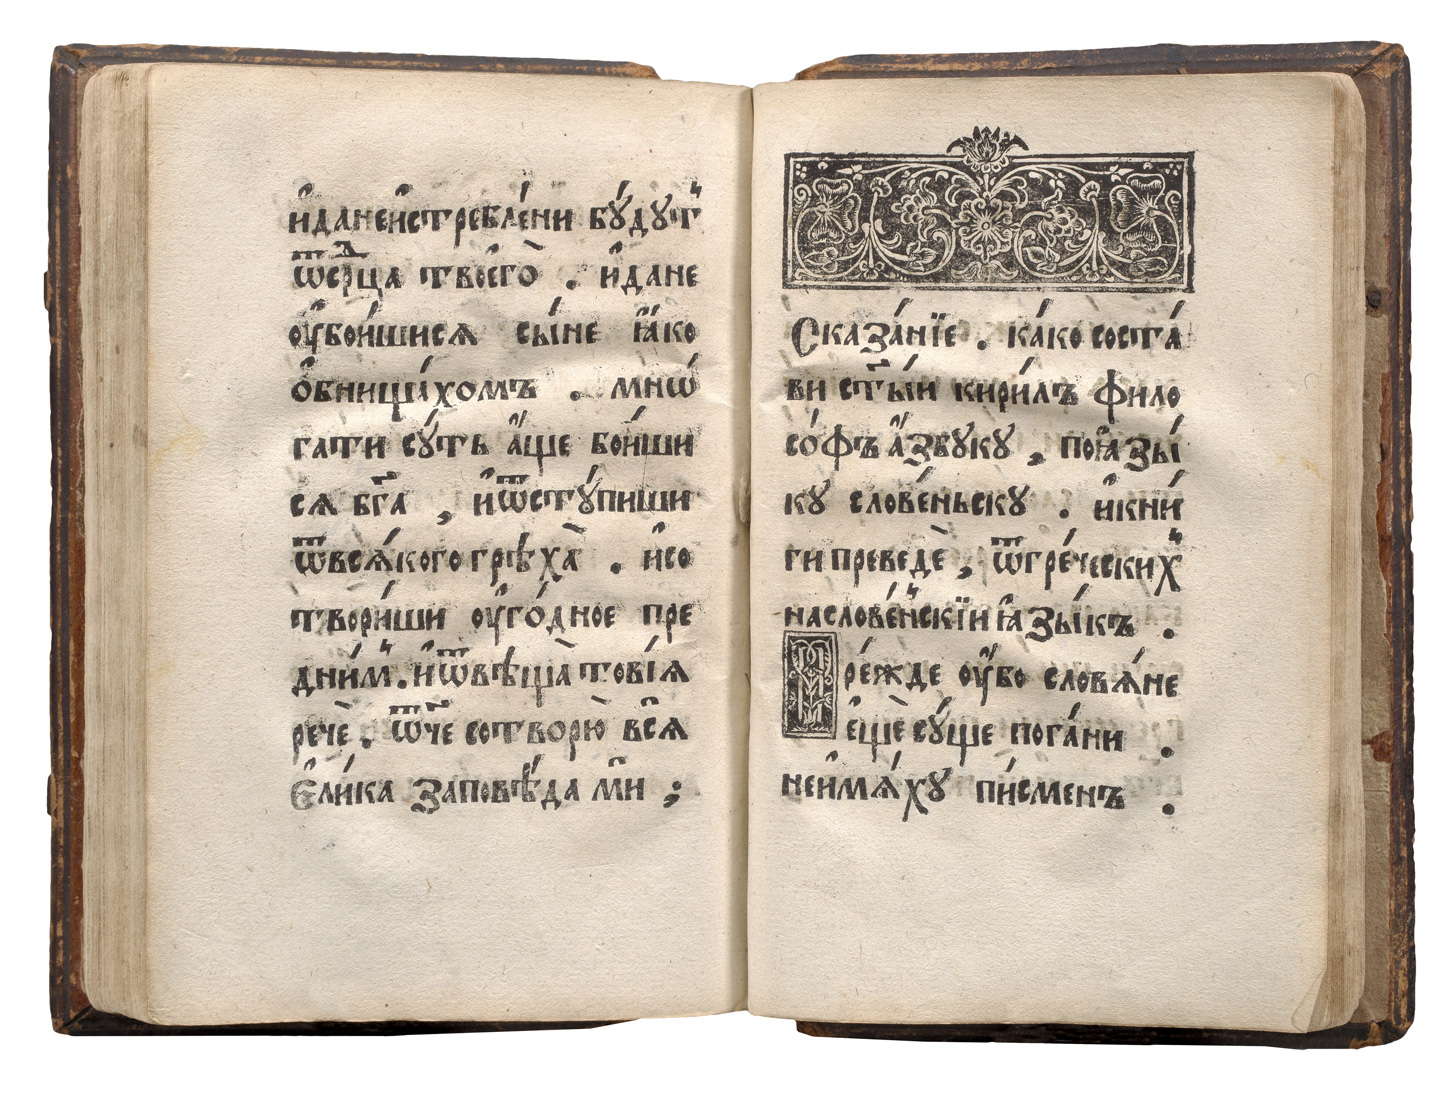 и҆данеи҆стребле́ни бꙋ́дꙋтъ
ѿсердца твоегѡ̀ . и҆дане
ᲂу҆бои́шисѧ сы́не ꙗ҆́ко
ѻ҆бнища́хомъ . мнѡ́
гати сꙋ́ть а҆́ще бои́ши
сѧ бг҃а , и҆ѿстꙋ́пиши
ѿвсѧ́кого грѣ́ха̀ . и҆со
твори́ши ᲂу҆го́дное пре
дни́мъ . и҆ѿвѣща̀ тові́ѧ
речѐ . ѿче сотворю̀ всѧ̑
є҆ли́ка заповѣ́да мѝ ;
Сказа́нїе . ка́ко соста́
ви ст҃ы́и кири́лъ фило
со́фъ а҆́збꙋкꙋ , поꙗ҆зы́
кꙋ слове́ньскꙋ . и҆кни́
ги преведѐ , ѿгре́ческихъ
наслове́нскїи ꙗ҆зы́къ .
Пре́жде ᲂу҆́бо словѧ́не
е҆щѐ сꙋ́ще пога́ни .
неи҆мѧ́хꙋ пи́сменъ .